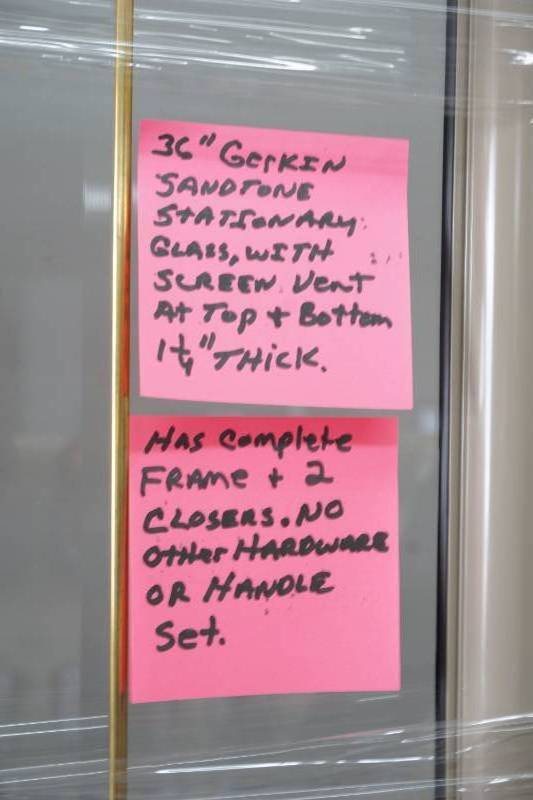 36" GerKIN
SANDTONE
STATIONARY
GLASS, WITH
SCREEN VenT
At Top + Bottom
1 1/4" THICK.
HAS Complete
FRAMe + 2
CLOSERS. NO
OtHer HARDWARE
OR HANDLE
Set.